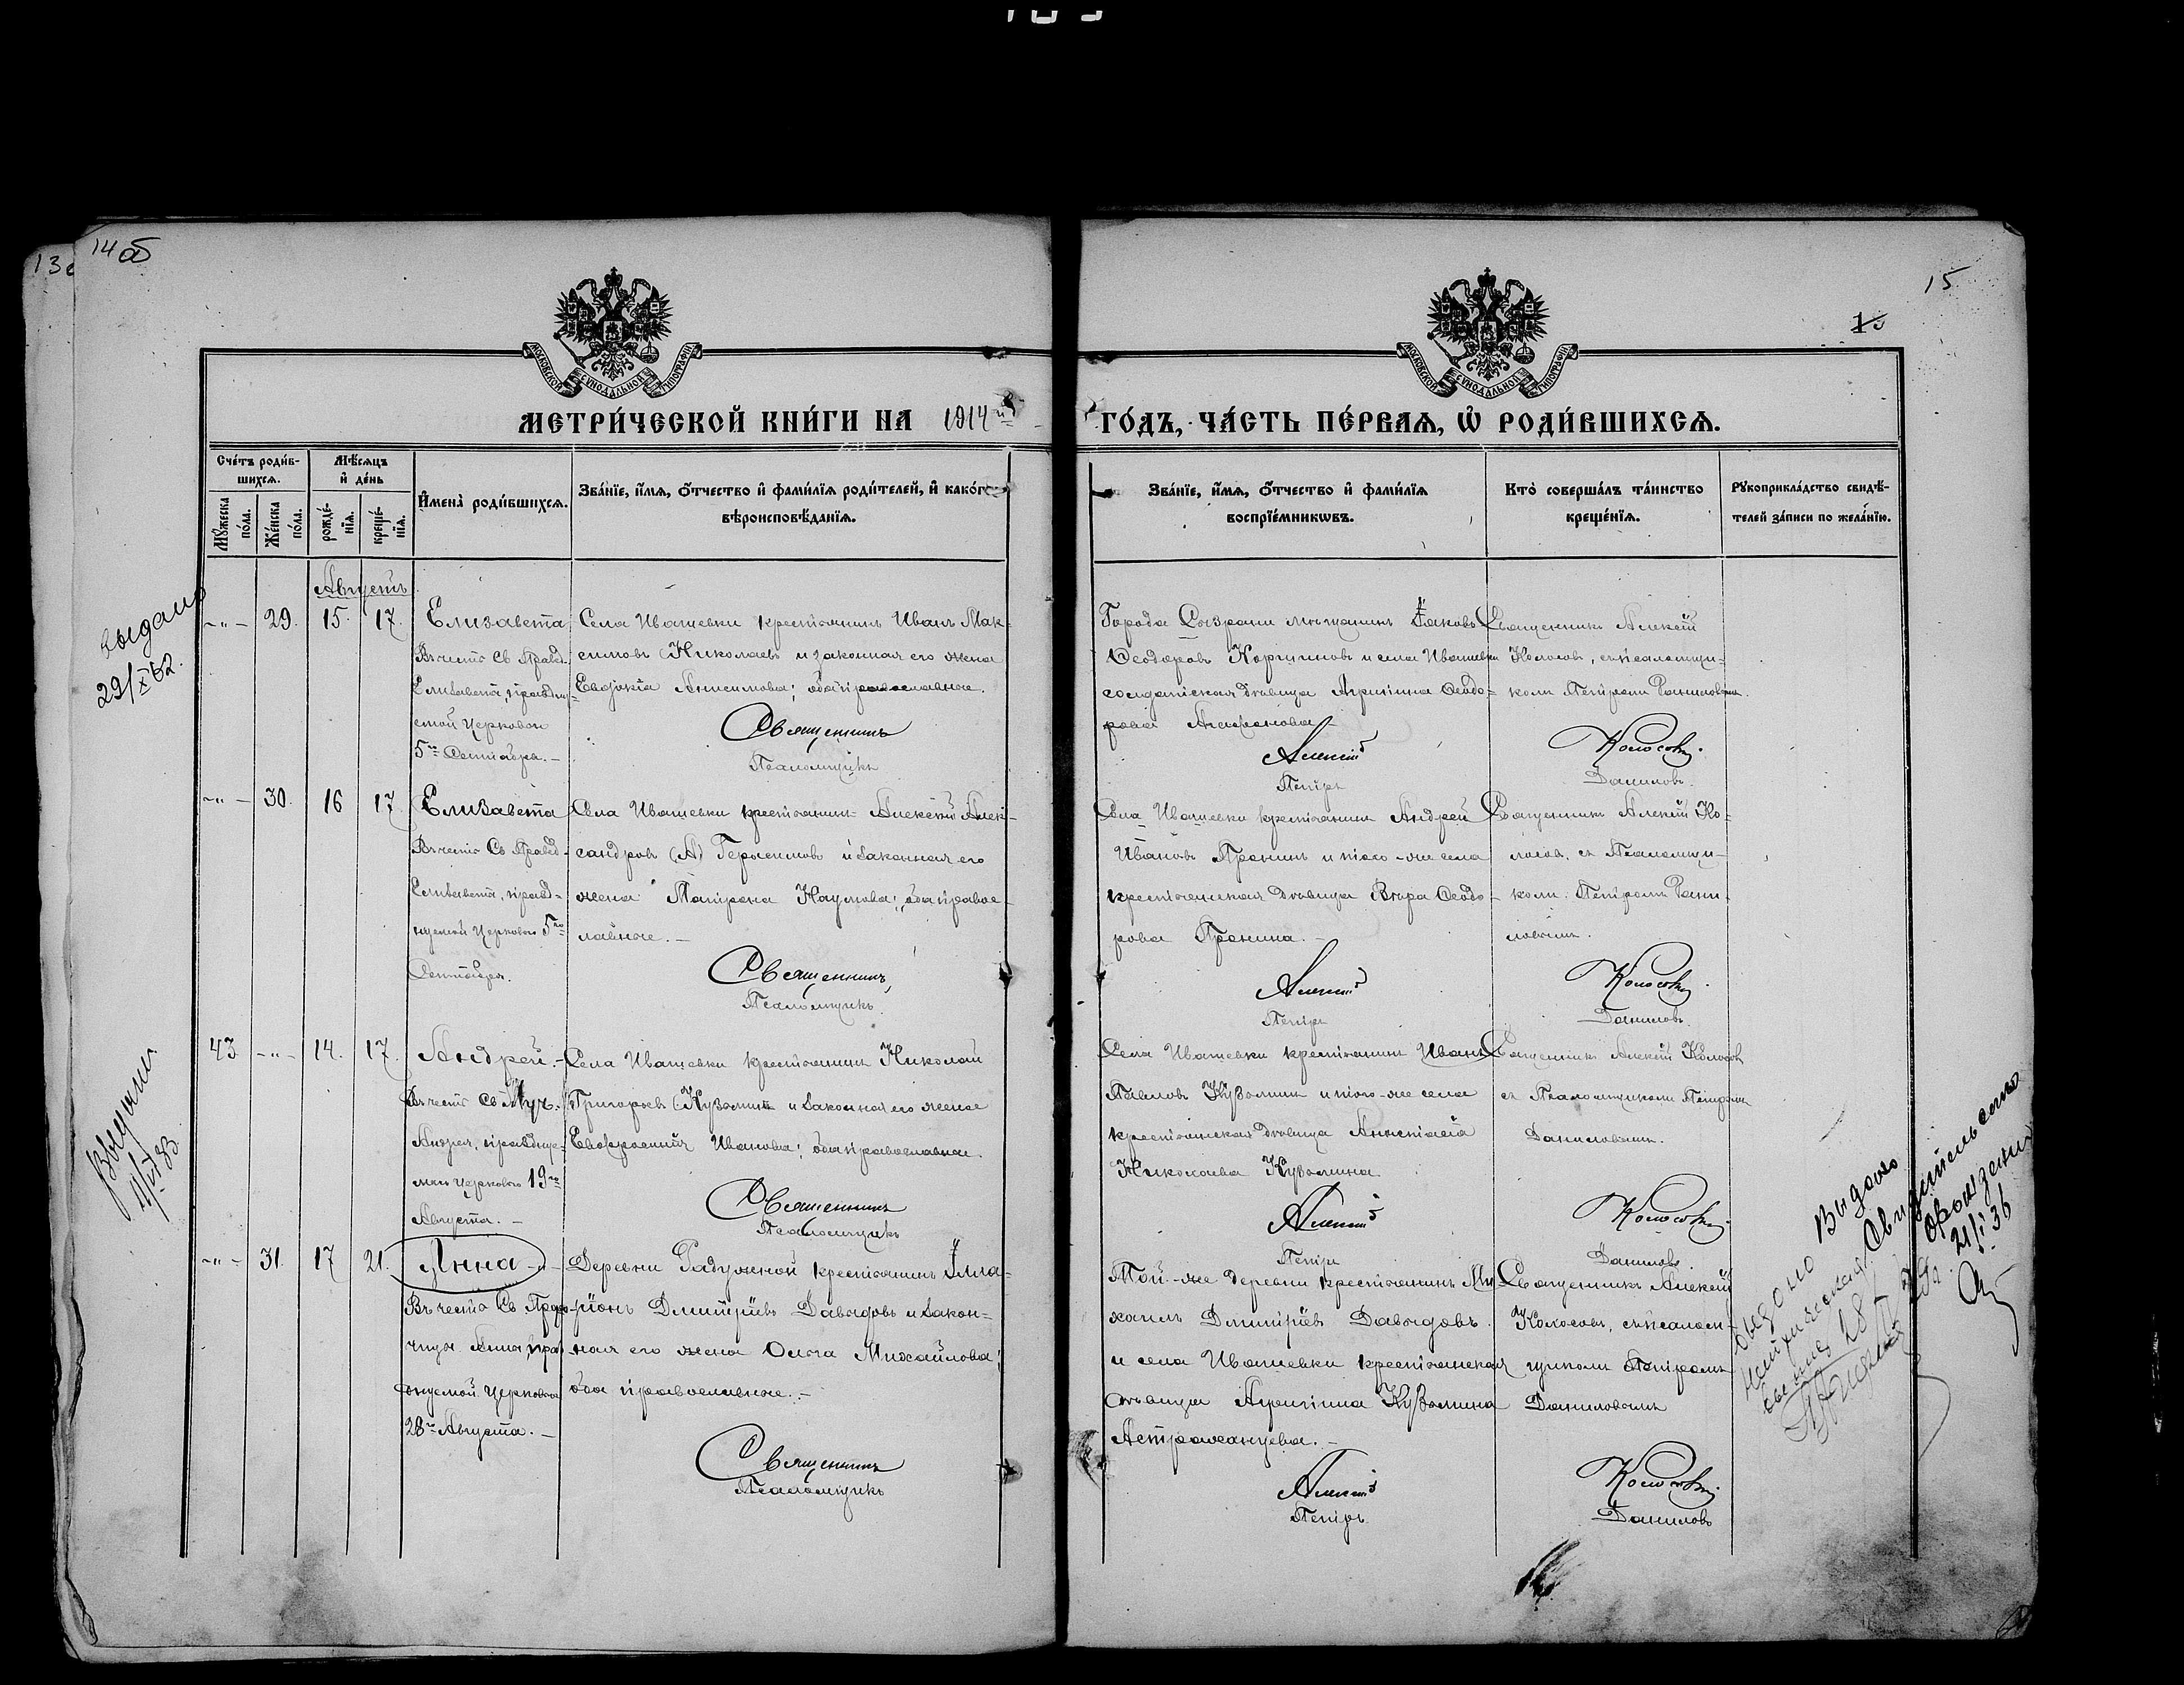 14 об
15
МОСКОВСКОЙ СУНОДАЛЬНОЙ ТИПОГРАФІИ
МОСКОВСКОЙ СУНОДАЛЬНОЙ ТИПОГРАФІИ
МЕТРИ́ЧЕСКОЙ КНИ́ГИ НА 1914й ГО́ДЪ, ЧА́СТЬ ПЕ́РВАЯ, Ѡ҆ РОДИ́ВШИХСЯ.
Сче́тъ роди́в-
шихся.
Мꙋ́жеска по́ла.
Же́нска по́ла.
Мѣ́сяцъ
и҆ де́нь
рожде́-
нїя.
креще́-
нїя.
И҆мена̀ роди́вшихся.
Зва́нїе, и҆́мя, ѻ҆́тчество и҆ фами́лїя роди́телей, и҆ како́гѡ
вѣроисповѣ́данїя.
Зва́нїе, и҆́мя, ѻ҆́тчество и҆ фами́лїя
воспрїе́мникѡвъ.
Кто̀ соверша́лъ та́инство
креще́нїя.
Рꙋкоприкла́дство свидѣ́-
телей за́писи по жела́нїю.
Августъ
29. 15. 17. Елизавета
Въ честь Св. Правед.
Елизаветы, праздну-
емой Церковью
5го Сентября.
Села Ивашевки крестьянинъ Иванъ Мак-
симовъ Николаевъ и законная его жена
Евдокія Анисимова; оба православные.
Священникъ
Псаломщикъ
Города Сызрани мѣщанинъ Іаковъ
Ѳеодоровъ Коршуновъ и села Ивашевки
солдатская дѣвица Агриппина Ѳеодо-
рова
Алексій
Петръ
Священникъ Алексій
Колосовъ, съ псаломщи-
комъ Петромъ Даниловымъ.
Колосовъ.
Даниловъ.
30. 16 17 Елизавета
Въ честь Св. Правед-
Елизаветы, празд-
нуемой Церковью 5го
Сентября.
Села Ивашевки крестьянинъ Алексій Алек-
сандровъ (А) Герасимовъ и законная его
жена Матрона Наумова; оба правос-
лавные.
Священникъ
Псаломщикъ
Села Ивашевки крестьянинъ Андрей
Ивановъ Пронинъ и того-же села
крестьянская дѣвица Вѣра Ѳеодо-
рова Пронина.
Алексій
Петръ
Священникъ Алексій Ко-
лосовъ, съ Псаломщи-
комъ Петромъ Дани-
ловымъ.
Колосовъ.
Даниловъ.
43 14. 17. Андрей.
Въ честь Св. Муч.
Андрея, празднуе-
маго Церковью 19го
Августа.
Села Ивашевки крестьянинъ Николай
Григорьевъ Кузьминъ и законная его жена
Евфросинія Иванова; оба православные.
Священникъ
Псаломщикъ
Села Ивашевки крестьянинъ Иванъ
Павловъ Кузьминъ и того-же села
крестьянская дѣвица Анастасія
Николаева Кузьмина
Алексій
Петръ
Священникъ Алексій Колосовъ
съ Псаломщикомъ Петромъ
Даниловымъ.
Колосовъ.
Даниловъ.
31. 17 21. Анна
Въ честь Св. Проро-
чицы Анны, праз-
днуемой Церковью
28го Августа.
Деревни Радужной крестьянинъ Илла-
ріонъ Дмитріевъ Давыдовъ и закон-
ная его жена Ольга Михайлова;
оба православные.
Священникъ
Псаломщикъ
Той-же деревни крестьянинъ Ми-
хаилъ Дмитріевъ Давыдовъ
и села Ивашевки крестьянская
дѣвица Агриппина Кузьмина
Астраханцева.
Алексій
Петръ
Священникъ Алексій
Колосовъ, съ псалом-
щикомъ Петромъ
Даниловымъ
Колосовъ.
Даниловъ
выдано
29/X 52.
11/VI 33
Выдано
свидетельство
о рождении
21/I 36